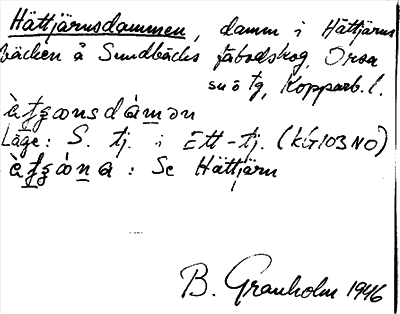 Hättjärnsdammen, damm i Hättjärns
bäcken å Sundbäcks fäbodskog, Orsa
sn ö tg, Kopparb. l.
Läge: S. tj. i Ett-tj. (kG103NO)
: Se Hättjärn
B. Granholm 1946